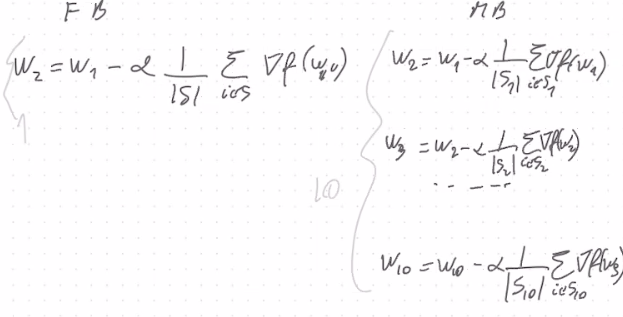 FB
w₂ = w₁ - α 1/|S| Σ_{i∈S} ∇f(w₁)
1
MB
w₂ = w₁ - α 1/|S₁| Σ_{i∈S₁} ∇f(w₁)
w₃ = w₂ - α 1/|S₂| Σ_{i∈S₂} ∇f(w₂)
.. ----
10
w₁₀ = w₁₀ - α 1/|S₁₀| Σ_{i∈S₁₀} ∇f(w₉)